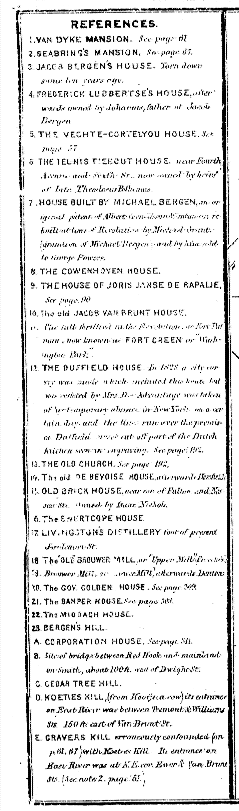 REFERENCES.
1. VAN DYKE MANSION. See page 61.
2. SEABRING'S MANSION. See page 65.
3. JACOB BERGEN'S HOUSE. Torn down
some ten years ago.
4. FREDERICK LUBBERTSE'S HOUSE, after
wards owned by Johannes, father of Jacob
Bergen
5. THE VECHTE-CORTELYOU HOUSE. See
page 57
6. THE TEUNIS TIEBOUT HOUSE. near Fourth
Avenue and Sixth St., now owned by
of late Theodorus Polhemus.
7. HOUSE BUILT BY MICHAEL BERGEN, on or
iginal patent of Albert Cornelissen
built at time of Revolution by Michael
(grandson of Michael Bergen) and by him sold
to George Powers.
8. THE COWENHOVEN HOUSE.
9. THE HOUSE OF JORIS JANSE DE RAPALIE,
See page 90
10. The old JACOB VAN BRUNT HOUSE.
11. The hill fortified in the Revolution as Fort Put
nam, now known as FORT GREEN or Wash-
ington Park.
12. THE DUFFIELD HOUSE. In 1828 a city
was made which included this house, but
was resisted by Mrs. D. Advantage was taken
of her temporary absence in New York on a cer
tain day and the line run over the premis-
es Duffield cut off part of the Dutch
Kitchen seen in engraving. See page
13. THE OLD CHURCH. See page 192.
14. The old DE BEVOISE HOUSE, afterwards
15. OLD BRICK HOUSE, near cor of Fulton and Nas
sau Sts. owned by Isaac Nichols.
16. The EVERTCOPE HOUSE.
17. LIVINGSTON'S DISTILLERY foot of present
Joralemon St.
18. The OLD BROUWER MILL, or "Upper Mill"
19. Brouwer Mill, afterwards Denton's
20. The GOV. GOLDEN HOUSE. See page
21. The BAMPER HOUSE. See page
22. The MIDDAGH HOUSE.
23. BERGEN'S HILL.
A. CORPORATION HOUSE, See page
B. Site of bridge between Red Hook and mainland
on Smith, about 100 ft. east of Dwight St.
C. CEDAR TREE HILL.
D. KOETIES KILL, (from Kooetjen, cow) its entrance
on East River was between Tremont & William
Sts. 150 ft. east of Van Brunt St.
E. GRAVERS KILL erroneously confounded (on
p. 61, 67) with Koeties Kill. Its entrance on
East River was at N.E. cor. Ewer & Van Brunt
Sts. (See note 2. page